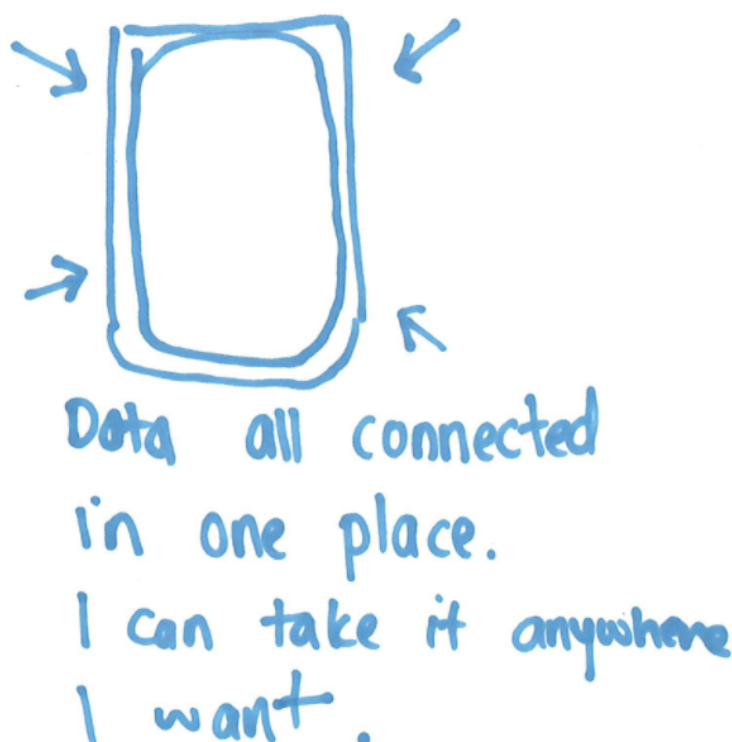 Data all connected
in one place.
I can take it anywhere
I want.